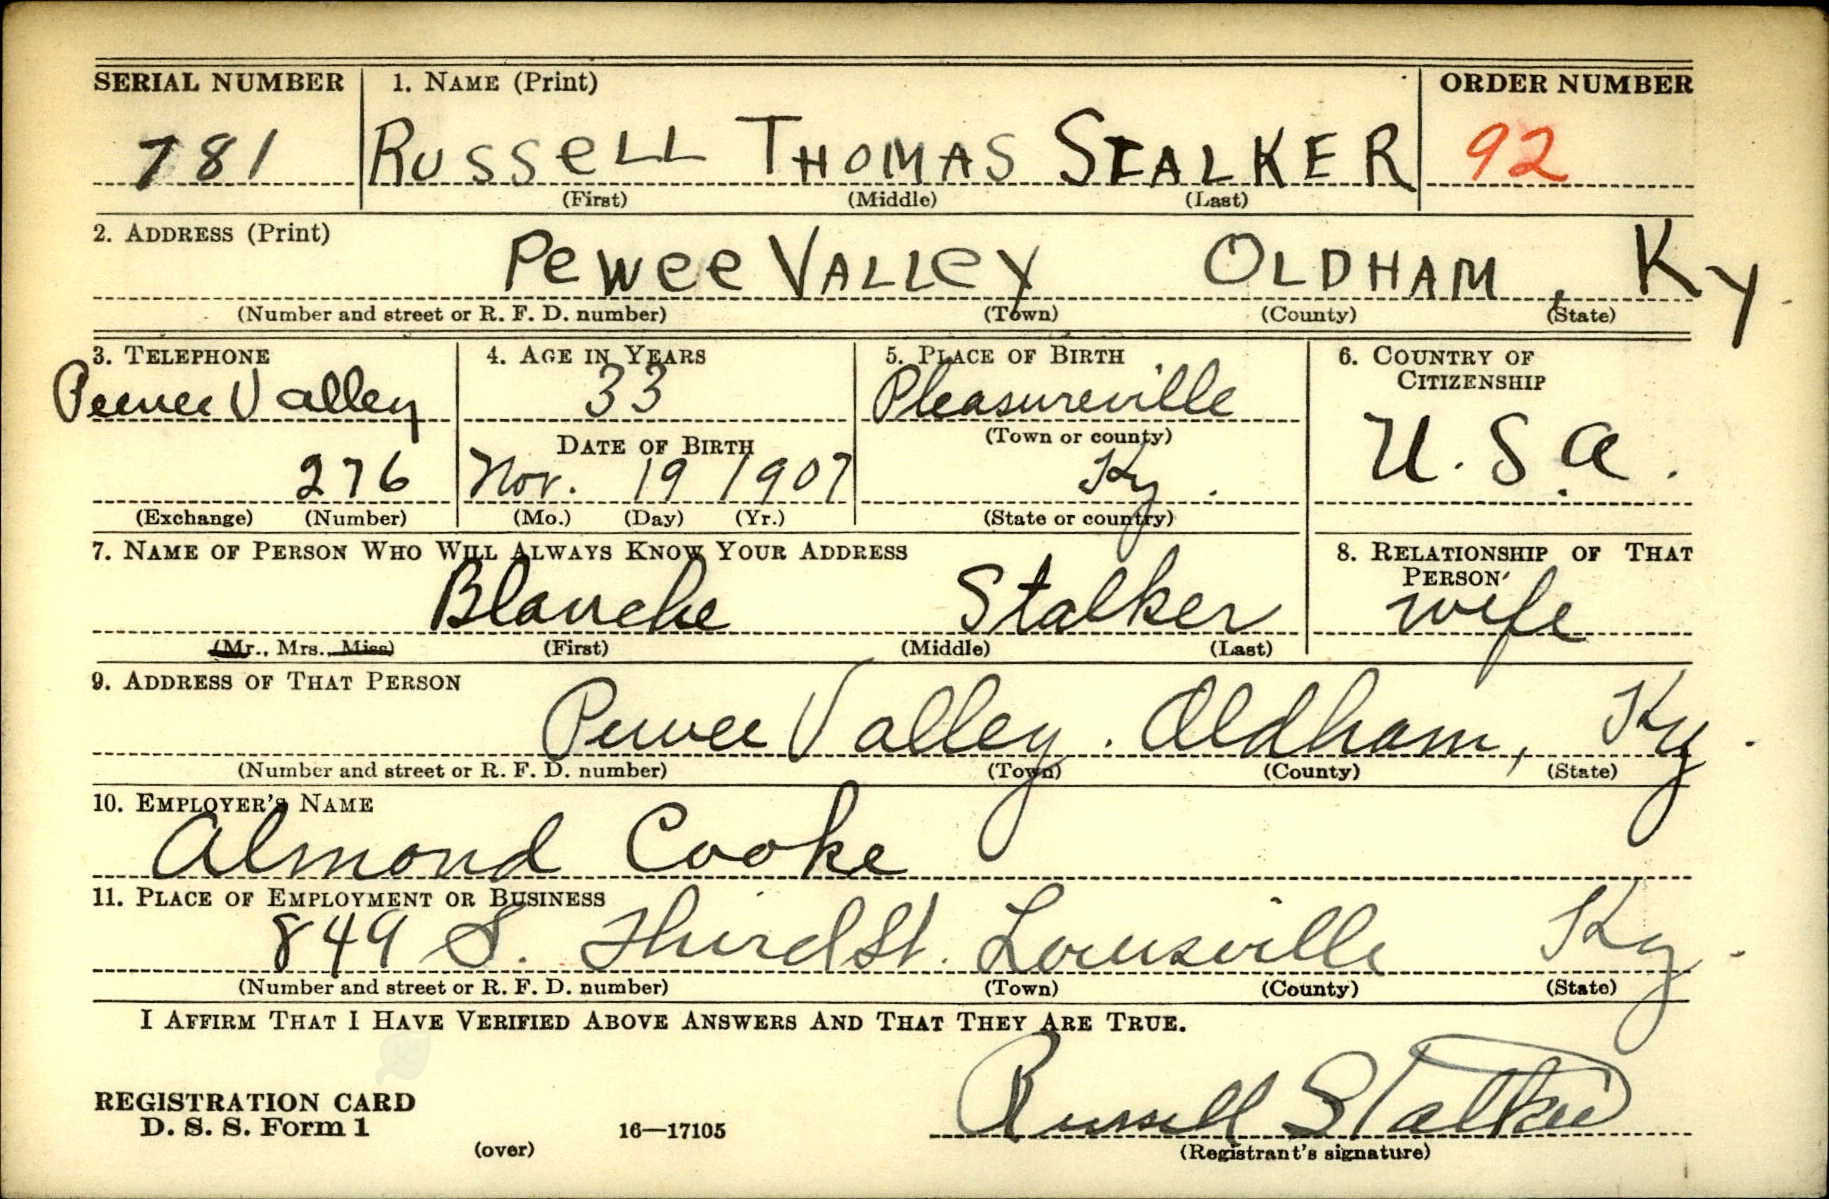 SERIAL NUMBER 1. NAME (Print) ORDER NUMBER
781 RUSSeLL THOMAS STALKER 92
(First) (Middle) (Last)
2. ADDRESS (Print)
PeWee VALLeY OLDHAM, KY.
(Number and street or R. F. D. number) (Town) (County) (State)
3. TELEPHONE 4. AGE IN YEARS 5. PLACE OF BIRTH 6. COUNTRY OF CITIZENSHIP
Pewee Valley 33 Pleasureville U.S.A.
DATE OF BIRTH (Town or county)
276 Nov. 19 1907 Ky.
(Exchange) (Number) (Mo.) (Day) (Yr.) (State or country)
7. NAME OF PERSON WHO WILL ALWAYS KNOW YOUR ADDRESS 8. RELATIONSHIP OF THAT PERSON
Blanche Stalker wife
(Mr., Mrs., Miss) (First) (Middle) (Last)
9. ADDRESS OF THAT PERSON
Pewee Valley. Oldham, Ky.
(Number and street or R. F. D. number) (Town) (County) (State)
10. EMPLOYER'S NAME
Almond Cooke
11. PLACE OF EMPLOYMENT OR BUSINESS
849 S. Third St. Louisville Ky.
(Number and street or R. F. D. number) (Town) (County) (State)
I AFFIRM THAT I HAVE VERIFIED ABOVE ANSWERS AND THAT THEY ARE TRUE.
Russell Stalker
REGISTRATION CARD
D. S. S. Form 1 (over) 16—17105 (Registrant's signature)